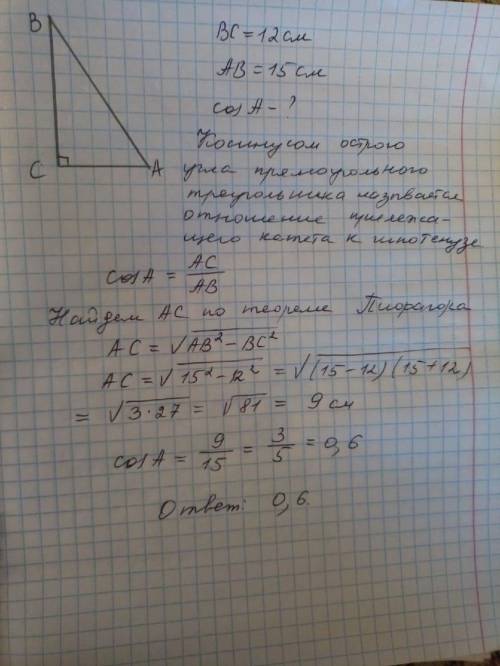 B
C
A
BC = 12 см
AB = 15 см
cos A - ?
Косинусом острого
угла прямоугольного
треугольника называется
отношение прилежа-
щего катета к гипотенузе
cos A = AC/AB
Найдем AC по теореме Пифагора
AC = √(AB² - BC²)
AC = √(15² - 12²) = √((15-12)(15+12))
= √(3·27) = √81 = 9 см
cos A = 9/15 = 3/5 = 0,6
Ответ: 0,6.